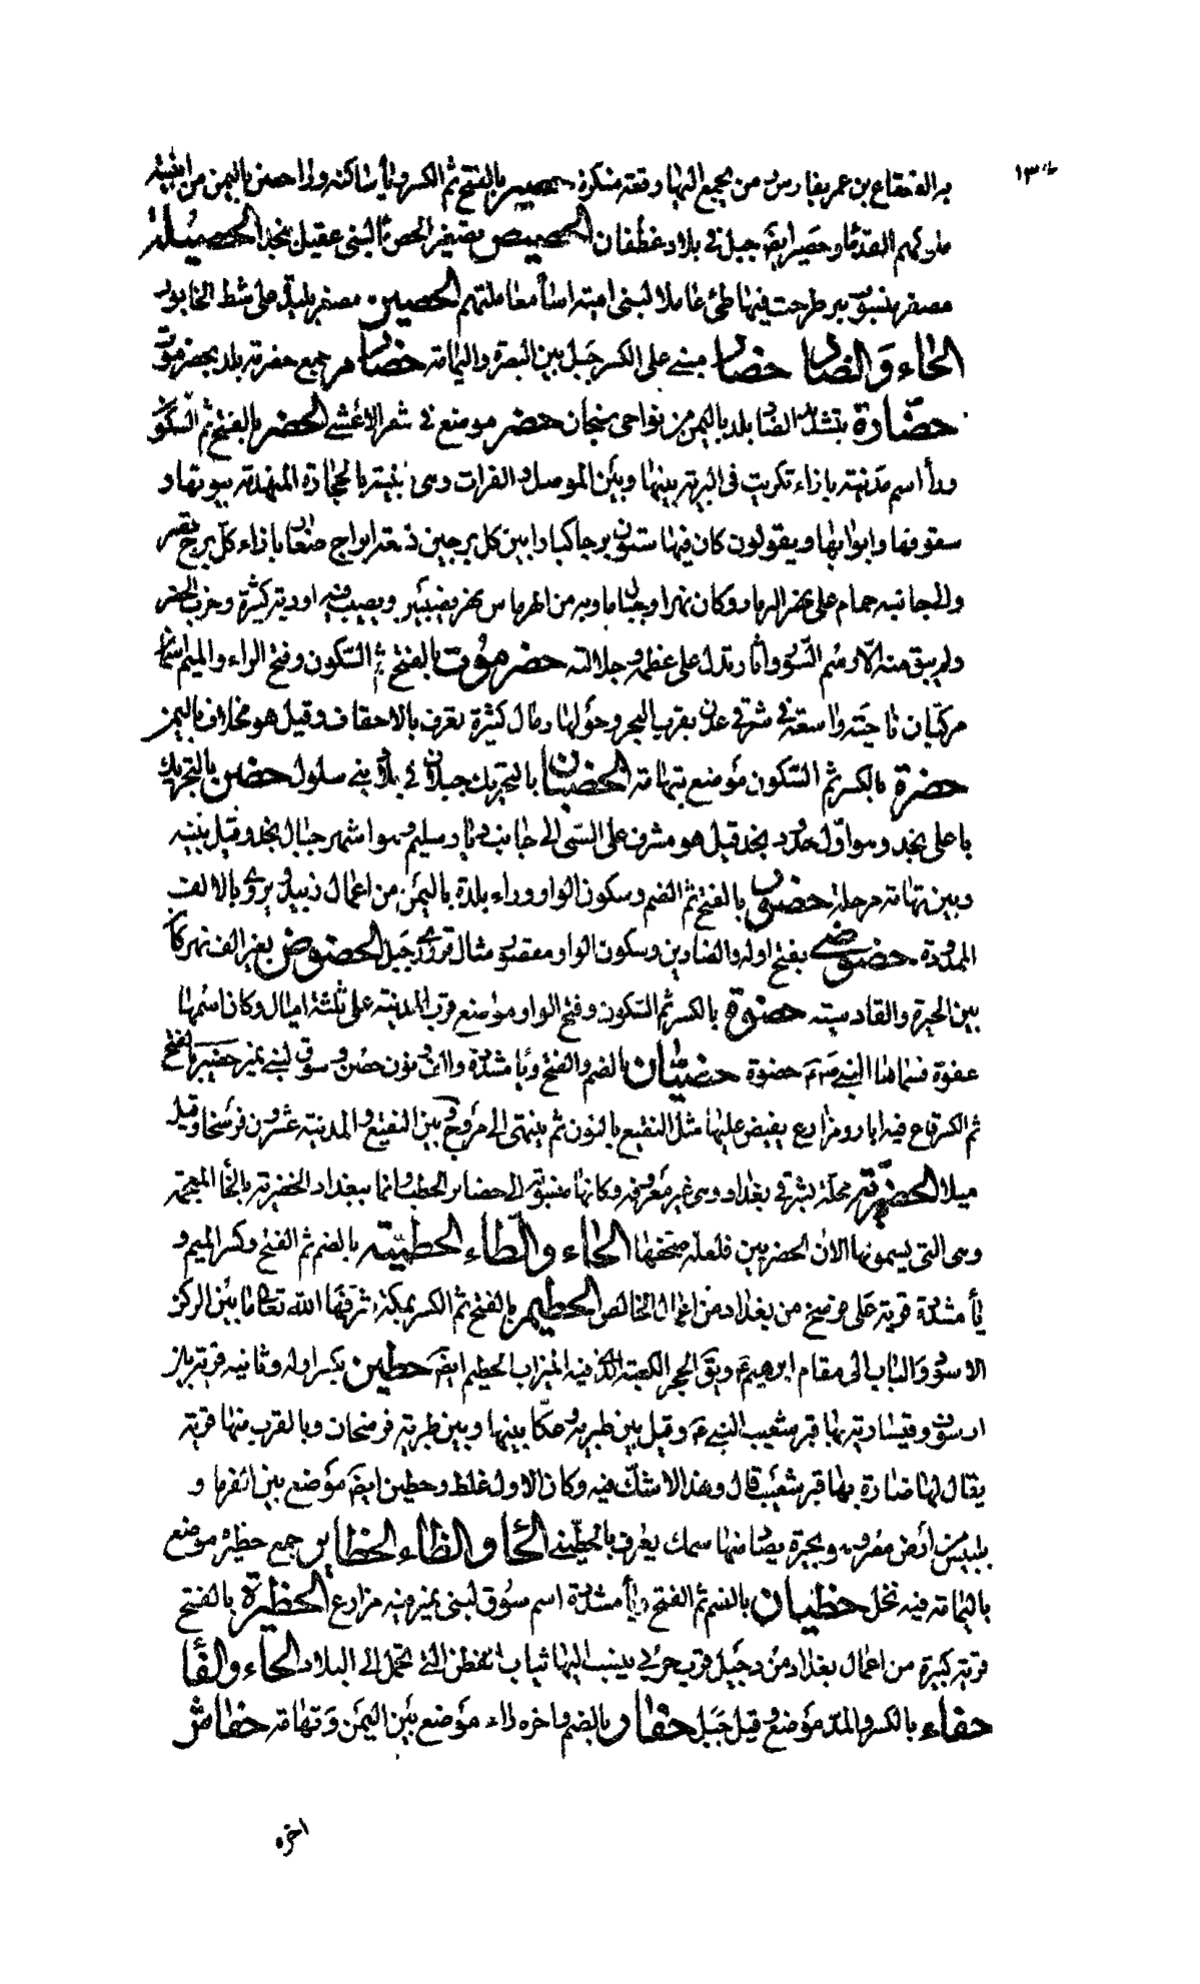 ١٣٤
به القعقاع بن عمر بفارس ومن يجمع اليها وقعة منكرة حصير بالفتح ثم الكسر ويأ ساكنة وراء حصن باليمن من ابنية
ملوكهم القدماء وحصير ايضً جبل في بلاد غطفان الحصيص تصغير الحص ماٌ لبنى عقيل بنجد الحصيلة
مصغر بير طرحت فيها طئ عاملا لبنى امية اساٌ معاملتهم الحصين مصغر بليد على شط الخابور
الحاء والضاد حضار مبنى على الكسر جبل بين البصرة واليمامة حضارم جمع حضرمة بلد بحضرموت
حضّارة بتشديد الضاد بلد باليمن من نواحى سنجان حضر موضع فى شعر الاعشى الحضر بالفتح ثم السكون
وراٌ اسم مدينة بازاء تكريت فى البرية بينها وبين الموصل والفرات وهى مبنية بالحجارة المهندمة بيوتها و
سقوفها وابوابها ويقولون كان فيها ستون برجا كبارا بين كل برجين تسعة ابراج صغار بازاء كل برج قصر
والى جانبه حمام على نهر الثرثار وكان نهرا وجنانا ومادته من الهرماس نهر نصيبين ويصب فيه اودية كثيرة وخرب الحضر
ولم يبق منه الا رسم السور وآثار تدل على عظم وجلالته حضرموت بالفتح ثم السكون وفتح الراء والميم اسمان
مركبان ناحية واسعة فى شرقى عدن بقرب البحر وحولها رمال كثيرة تعرف بالاحقاف وقيل هو مخلاف باليمن
حضرة بالكسر ثم السكون موضع بتهامة الحضنان بالتحريك جبلان فى بلاد بنى سلول حضن بالتحريك
باعلى نجد وهو اول حدود نجد قيل هو مشرف على السى الى جانب ديار سليم وهو اشهر جبال نجد وقيل بينه
وبين تهامة مرحلة حضور بالفتح ثم الضم وسكون الواو وراء بلدة باليمن من اعمال زبيد ويروى بالالف
الممدودة حضوضى بفتح اوله والضادين وسكون الواو مقصور مثال قرورى جبل الحضوض بغير الف نهر كان
بين الحيرة والقادسية حضوة بالكسر ثم السكون وفتح الواو موضع قرب المدينة على ثلثة اميال وكان اسمها
عفوة فسماها النبى صم حضوة حضيان بالضم والفتح ويا مشددة والف ونون حصن وسوق لبنى نمير حضير بالفتح
ثم الكسر قاع فيه ابار ومزارع يفيض عليها مثل النقيع بالنون ثم ينتهى الى مزج بين النقيع والمدينة عشرون فرسخا وقيل
ميلا الحضيرية محلة بشرقى بغداد وهى غير معروفة وكانها منسوبة الى حضاير الحطب وانما ببغداد الخضيرية بالخا المعجمة
وهى التى يسمونها الان الحضريين فلعله صحفها الحاء والطاء الحطمية بالضم ثم الفتح وكسر الميم و
يأ مشددة قرية على فرسخ من بغداد من اعمال الخالص الحطيم بالفتح ثم الكسر بمكة شرفها الله تعالى ما بين الركن
الاسود والباب الى مقام ابرهيم عم ويق الحجر الكعبة الذى فيه الميزاب الحطيم ايضً حطين بكسر اوله وثانيه قرية بين
ارسوف وقيسارية بها قبر شعيب النبى عم وقيل بين طبرية وعكا بينها وبين طبرية فرسخان وبالقرب منها قرية
يقال لها خيارة بها قبر شعيب قال وهذا لاشك فيه وكان الاول غلط وحطين ايضً موضع بين الفرما و
بلبيس من ارض مصر وبحيرة يصاد منها سمك يعرف بالحطينى الحا والظاء الحظاير جمع حظيرة موضع
باليمامة فيه نخل حظيان بالضم ثم الفتح ويأ مشددة اسم سوق لبنى نمير فيه مزارع الحظيرة بالفتح
قرية كبيرة من اعمال بغداد من دجيل قرب حربى ينسب اليها ثياب القطن التى تحمل الى البلاد الحاء والفأ
حفاء بالكسر والمد موضع وقيل جبل حفار بالضم واخره راء موضع بين اليمن وتهامة حفاش
اخره